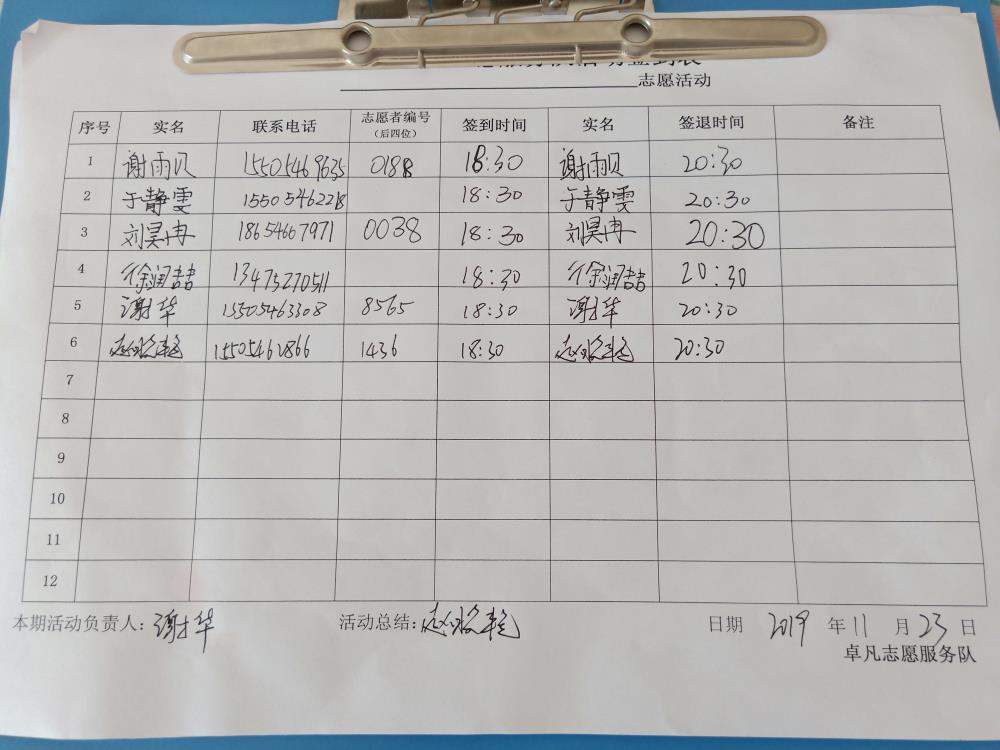 志愿活动
序号 实名 联系电话 志愿者编号（后四位） 签到时间 实名 签退时间 备注
1 谢雨贝 15505469635 0188 18:30 谢雨贝 20:30
2 于静雯 15505462218 18:30 于静雯 20:30
3 刘昊冉 18654667971 0038 18:30 刘昊冉 20:30
4 徐润喆 13475270511 18:30 徐润喆 20:30
5 谢华 15505463308 8565 18:30 谢华 20:30
6 15505462866 1436 18:30 20:30
7
8
9
10
11
12
本期活动负责人：谢华 活动总结： 日期 2019 年 11 月 23 日
卓凡志愿服务队